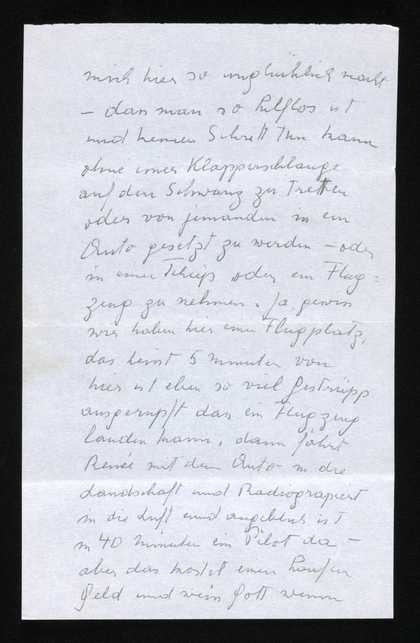 mich hier so unglücklich macht
– dass man so hilflos ist
und keinen Schritt tun kann
ohne einer Klapperschlange
auf den Schwanz zu Tretten
oder von jemanden in ein
Auto gesetzt zu werden – oder
in einen oder ein Flug=
zeug zu nehmen. Ja, gewiss
wir haben hier einen Flugplatz,
das heist 5 minuten von
hier ist eben so viel Gestrüpp
ausgerupft das ein Flugzeug
landen kann, dann fährt
Renée mit dem Auto in die
Landschaft und Radiographiert
in die Luft und angeblich ist
in 40 minuten ein Pilot da –
aber das kostet einen haufen
Geld und weiss Gott wenn